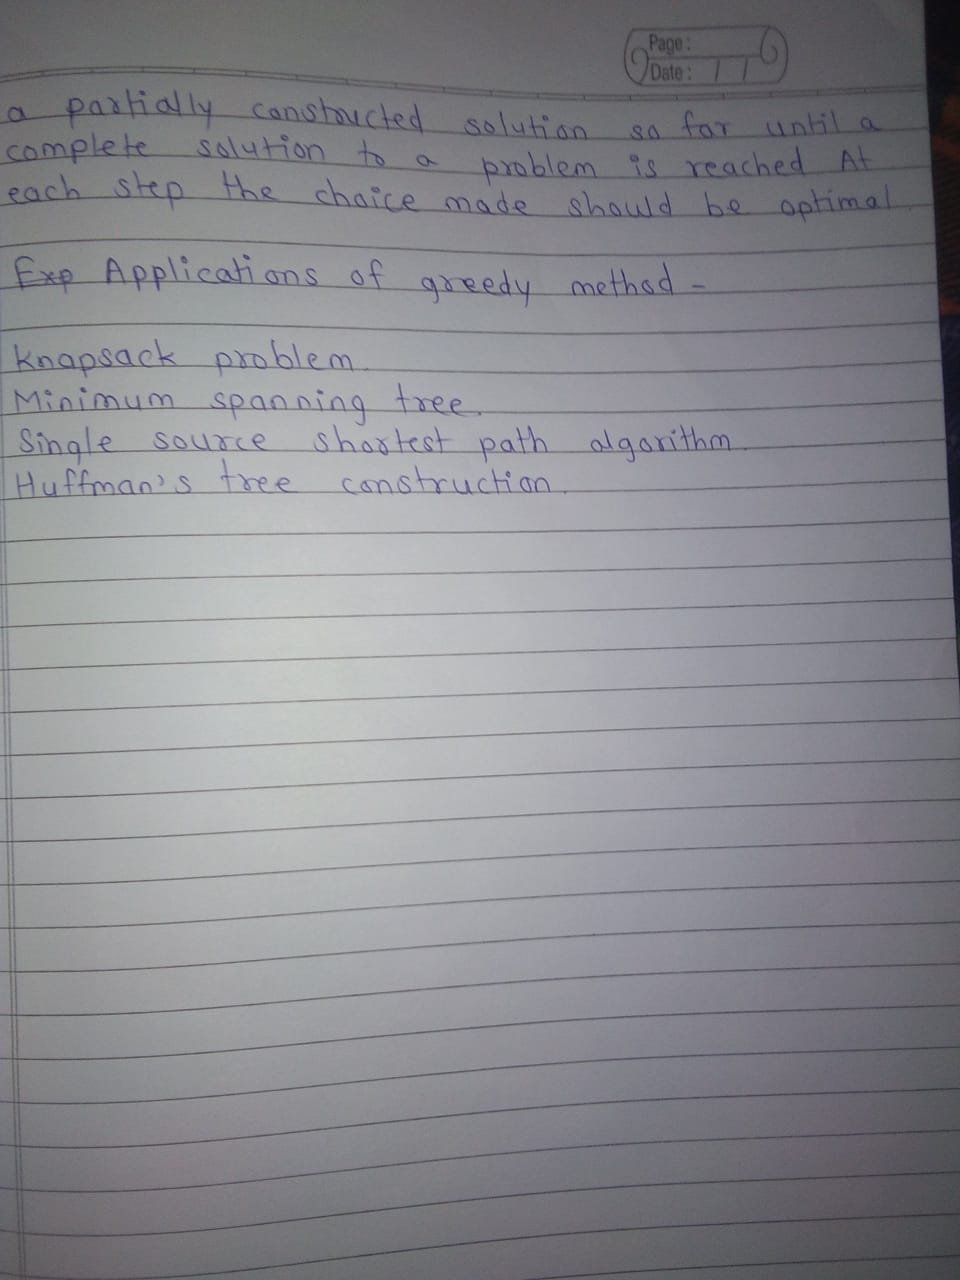 Page:
Date: / /
a partially constructed solution so far until a
complete solution to a problem is reached At
each step the choice made should be optimal
Exp Applications of greedy method -
Knapsack problem.
Minimum spanning tree.
Single source shortest path algorithm.
Huffman's tree construction.